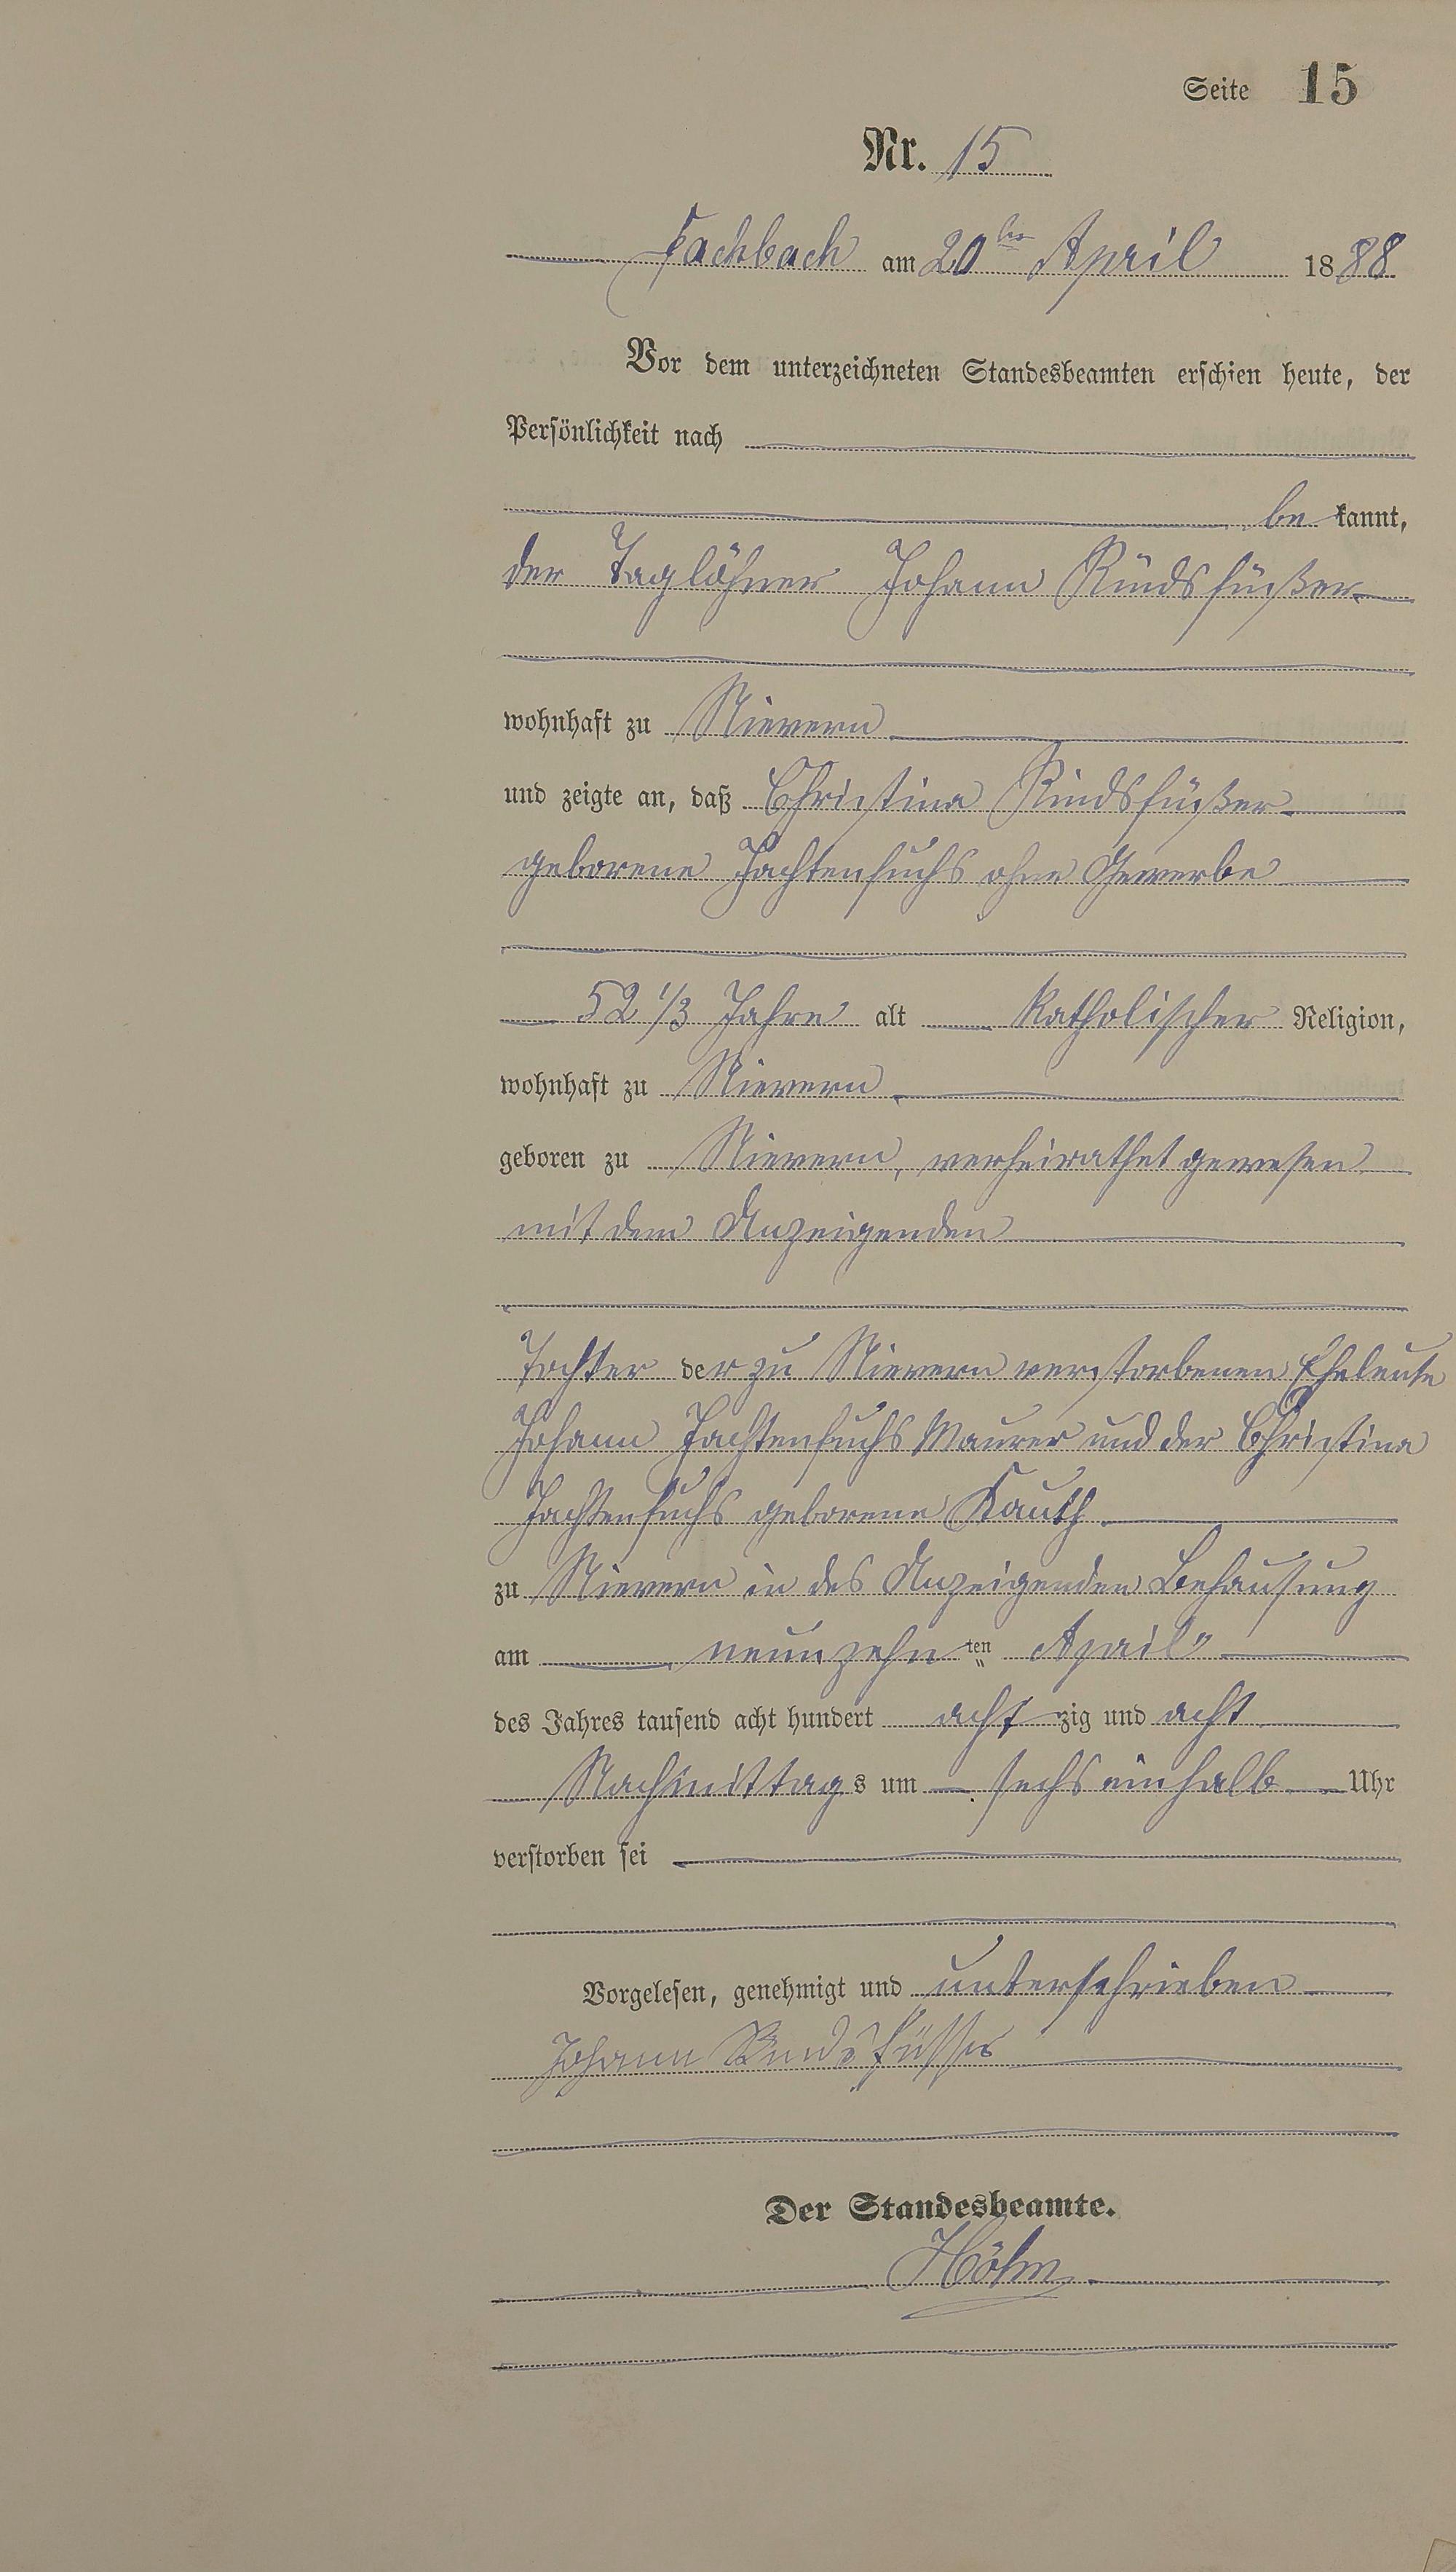 Seite 15
Nr. 15
Fachbach am 20ten April 1888
Vor dem unterzeichneten Standesbeamten erschien heute, der
Persönlichkeit nach
be kannt,
der Taglöhner Johann Rindsfüßer
wohnhaft zu Nievern
und zeigte an, daß Christina Rindsfüßer
geborene Jachtenfuchs ohne Gewerbe
52 1/3 Jahre alt katholischer Religion,
wohnhaft zu Nievern
geboren zu Nievern, verheirathet gewesen
mit dem Anzeigenden
Tochter der zu Nievern verstorbenen Eheleute
Johann Jachtenfuchs Maurer und der Christina
Jachtenfuchs geborene Kauth
zu Nievern in des Anzeigenden Behausung
am neunzehnten April
des Jahres tausend acht hundert acht zig und acht
Nachmittags um sechs einhalb Uhr
verstorben sei
Vorgelesen, genehmigt und unterschrieben
Johann Rindsfüsser
Der Standesbeamte.
Höhn